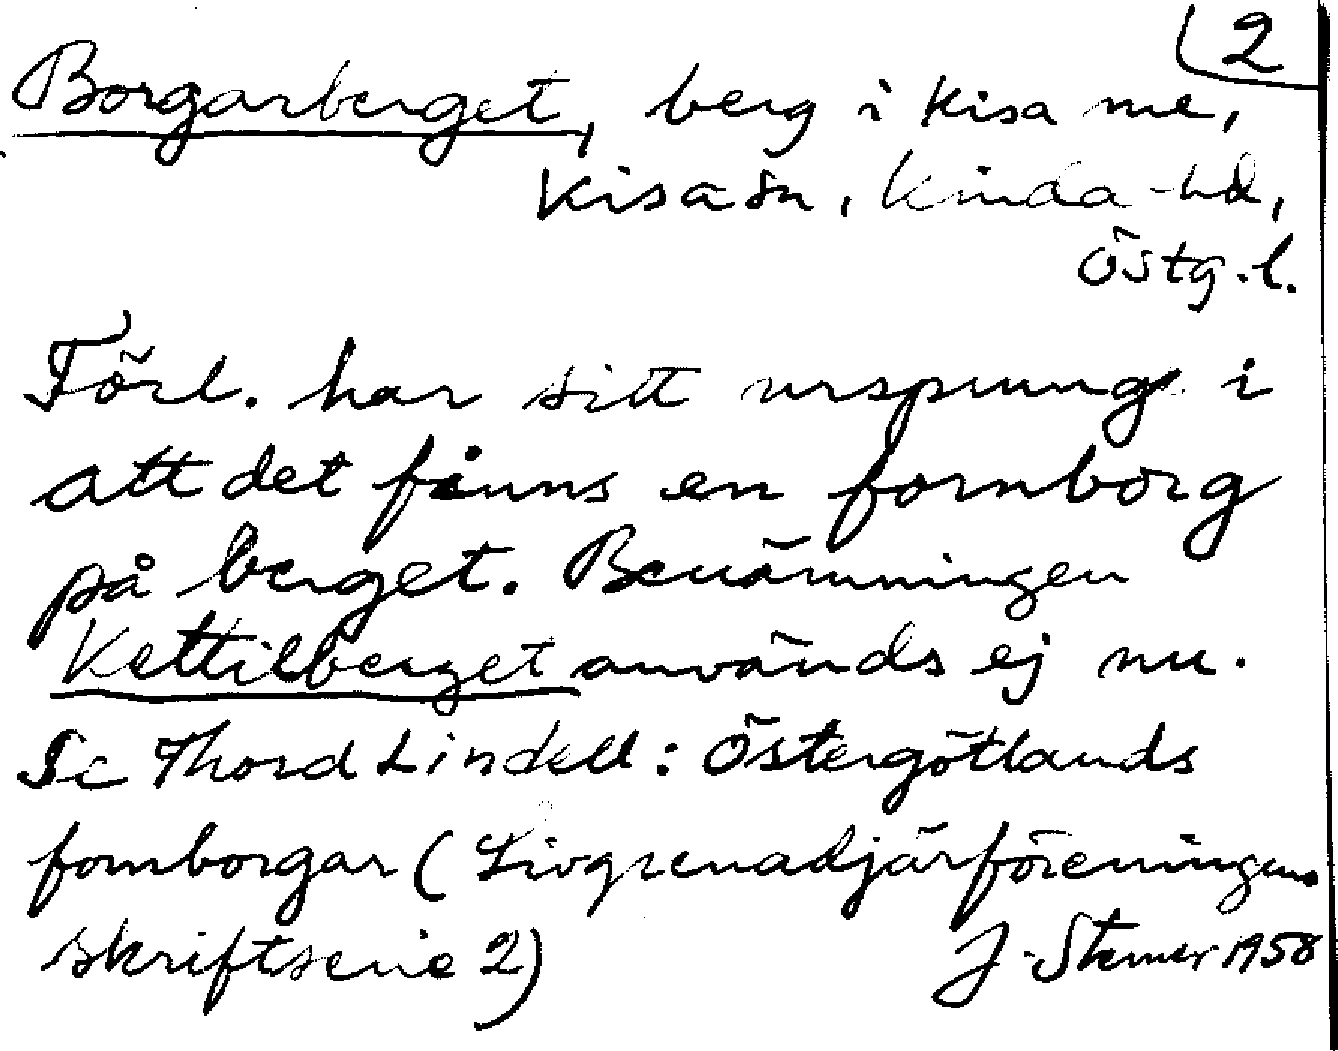 2
Borgarberget, berg i Kisa me,
Kisa sn, Kinda hd,
Östg. l.
Förl. har sitt ursprung i
att det finns en fornborg
på berget. Benämningen
Kettilberget används ej nu.
Se Thord Lindell: Östergötlands
fornborgar (Livgrenadjärföreningens
skriftserie 2) J. Sterner 1958